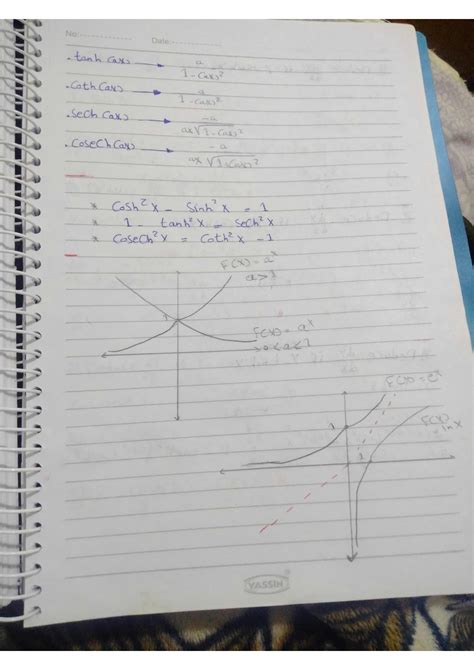 No:
Date:
. tanh (ax) → a / 1-(ax)²
. Coth (ax) → a / 1-(ax)²
. Sech (ax) → -a / ax√1-(ax)²
. Cosech (ax) → -a / ax√1+(ax)²
* Cosh² X - Sinh² X = 1
* 1 - tanh² X = Sech² X
* Cosech² X = Coth² X - 1
F(X) = aˣ
a > 1
1
F(X) = aˣ
0 < a < 1
F(X) = eˣ
F(X) = ln X
1
1
YASSIN